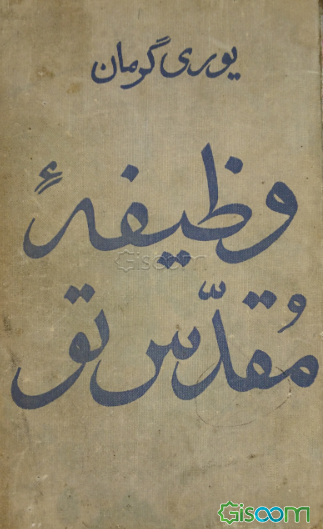 یوری گرمان
وظیفهٔ
Gisoom
مُقدّس تو
Gisoom